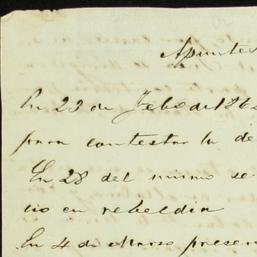 Apuntes
En 23 de Febo de 186
para contestar la de
En 28 del mismo se
cio en rebeldia
En 4 de Marzo presen